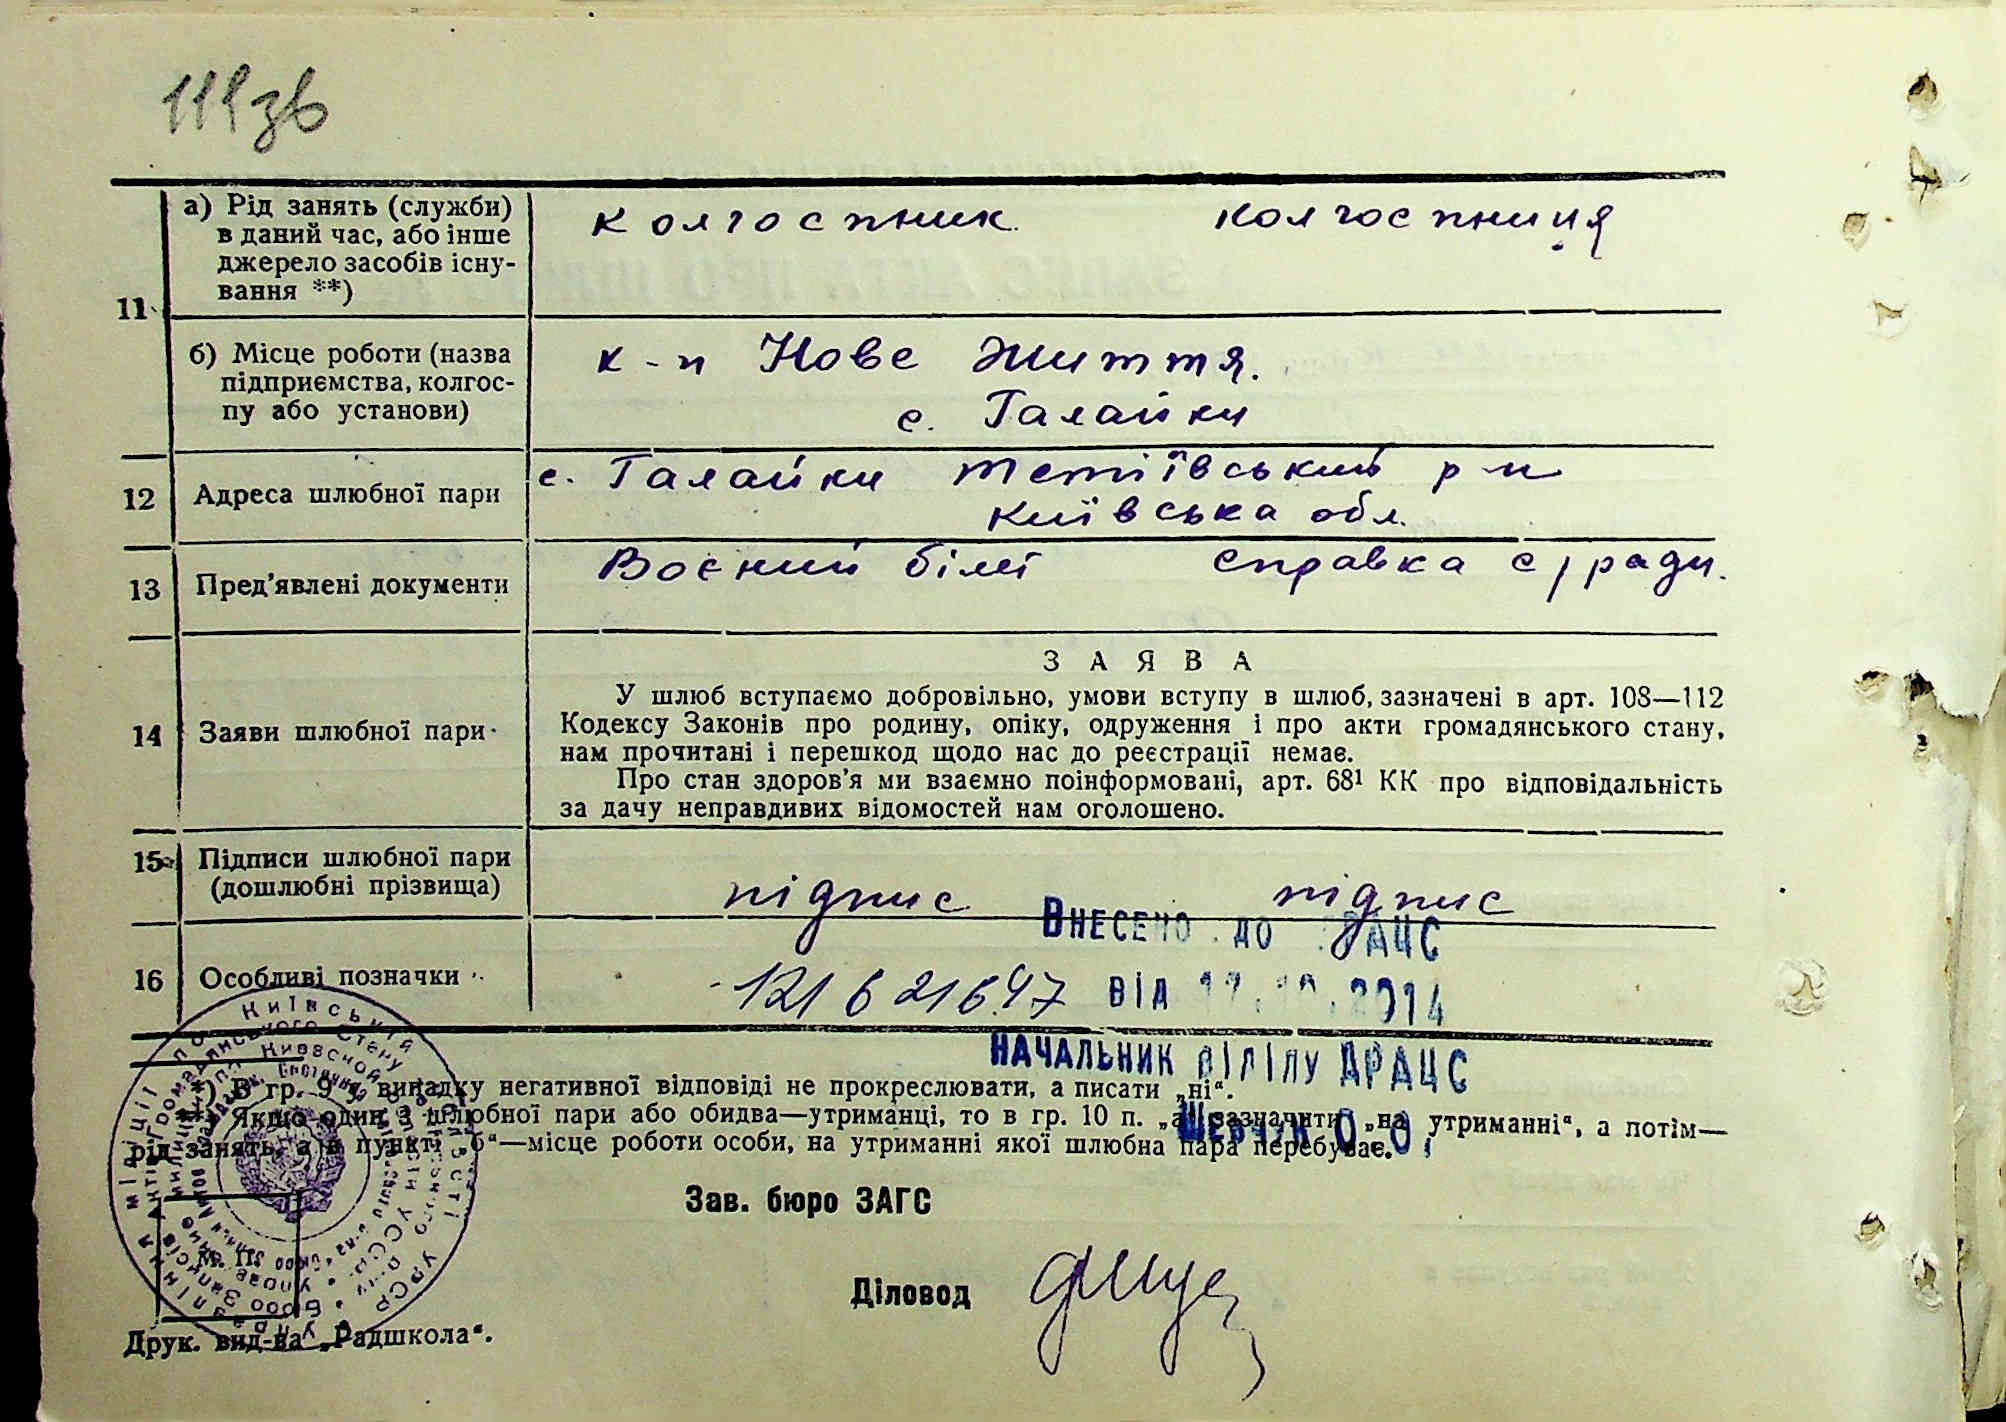 111зв
11
а) Рід занять (служби)
в даний час, або інше
джерело засобів існу-
вання **)
колгоспник. колгоспниця
б) Місце роботи (назва
підприємства, колгос-
пу або установи)
к-п Нове життя.
с. Галайки
12 Адреса шлюбної пари
с. Галайки тетіївський р-н
київська обл.
13 Пред'явлені документи
Воєний білет справка с/ради.
14 Заяви шлюбної пари
ЗАЯВА
У шлюб вступаємо добровільно, умови вступу в шлюб, зазначені в арт. 108—112
Кодексу Законів про родину, опіку, одруження і про акти громадянського стану,
нам прочитані і перешкод щодо нас до реєстрації немає.
Про стан здоров'я ми взаємно поінформовані, арт. 68¹ КК про відповідальність
за дачу неправдивих відомостей нам оголошено.
15 Підписи шлюбної пари
(дошлюбні прізвища)
підпис підпис
Внесено до ДРАЦС
16 Особливі позначки
121621647 від 2014
НАЧАЛЬНИК ВІДІЛУ ДРАЦС
*) В гр. 9 у випадку негативної відповіді не прокреслювати, а писати „ні“.
**) Якщо один з шлюбної пари або обидва—утриманці, то в гр. 10 п. „а“ зазначити „на утриманні“, а потім—
рід занять, а в пункті „б“—місце роботи особи, на утриманні якої шлюбна пара перебуває.
Шевчук О.О.
Зав. бюро ЗАГС
М. П.
Діловод
Друк. вид-ва „Радшкола“.